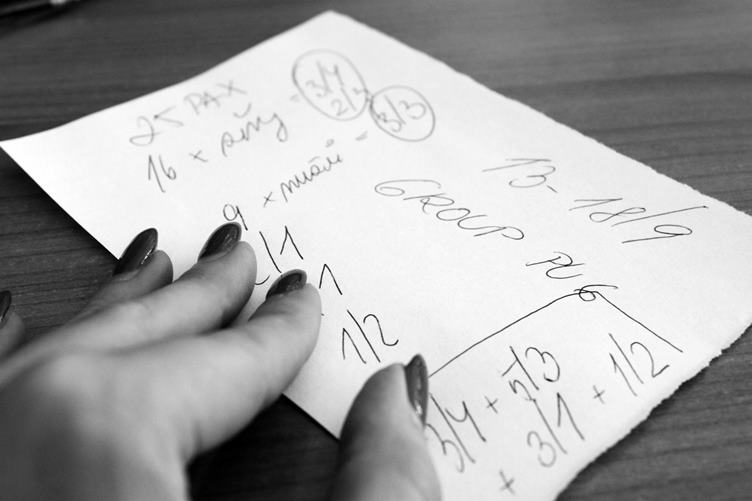 25 PAX
16 x ženy = 3/4
9 x mužů = 3/3
13-18/9
GROUP PU 6
/1
1
1/2
3/4 + 5/3
+ 3/1 + 1/2